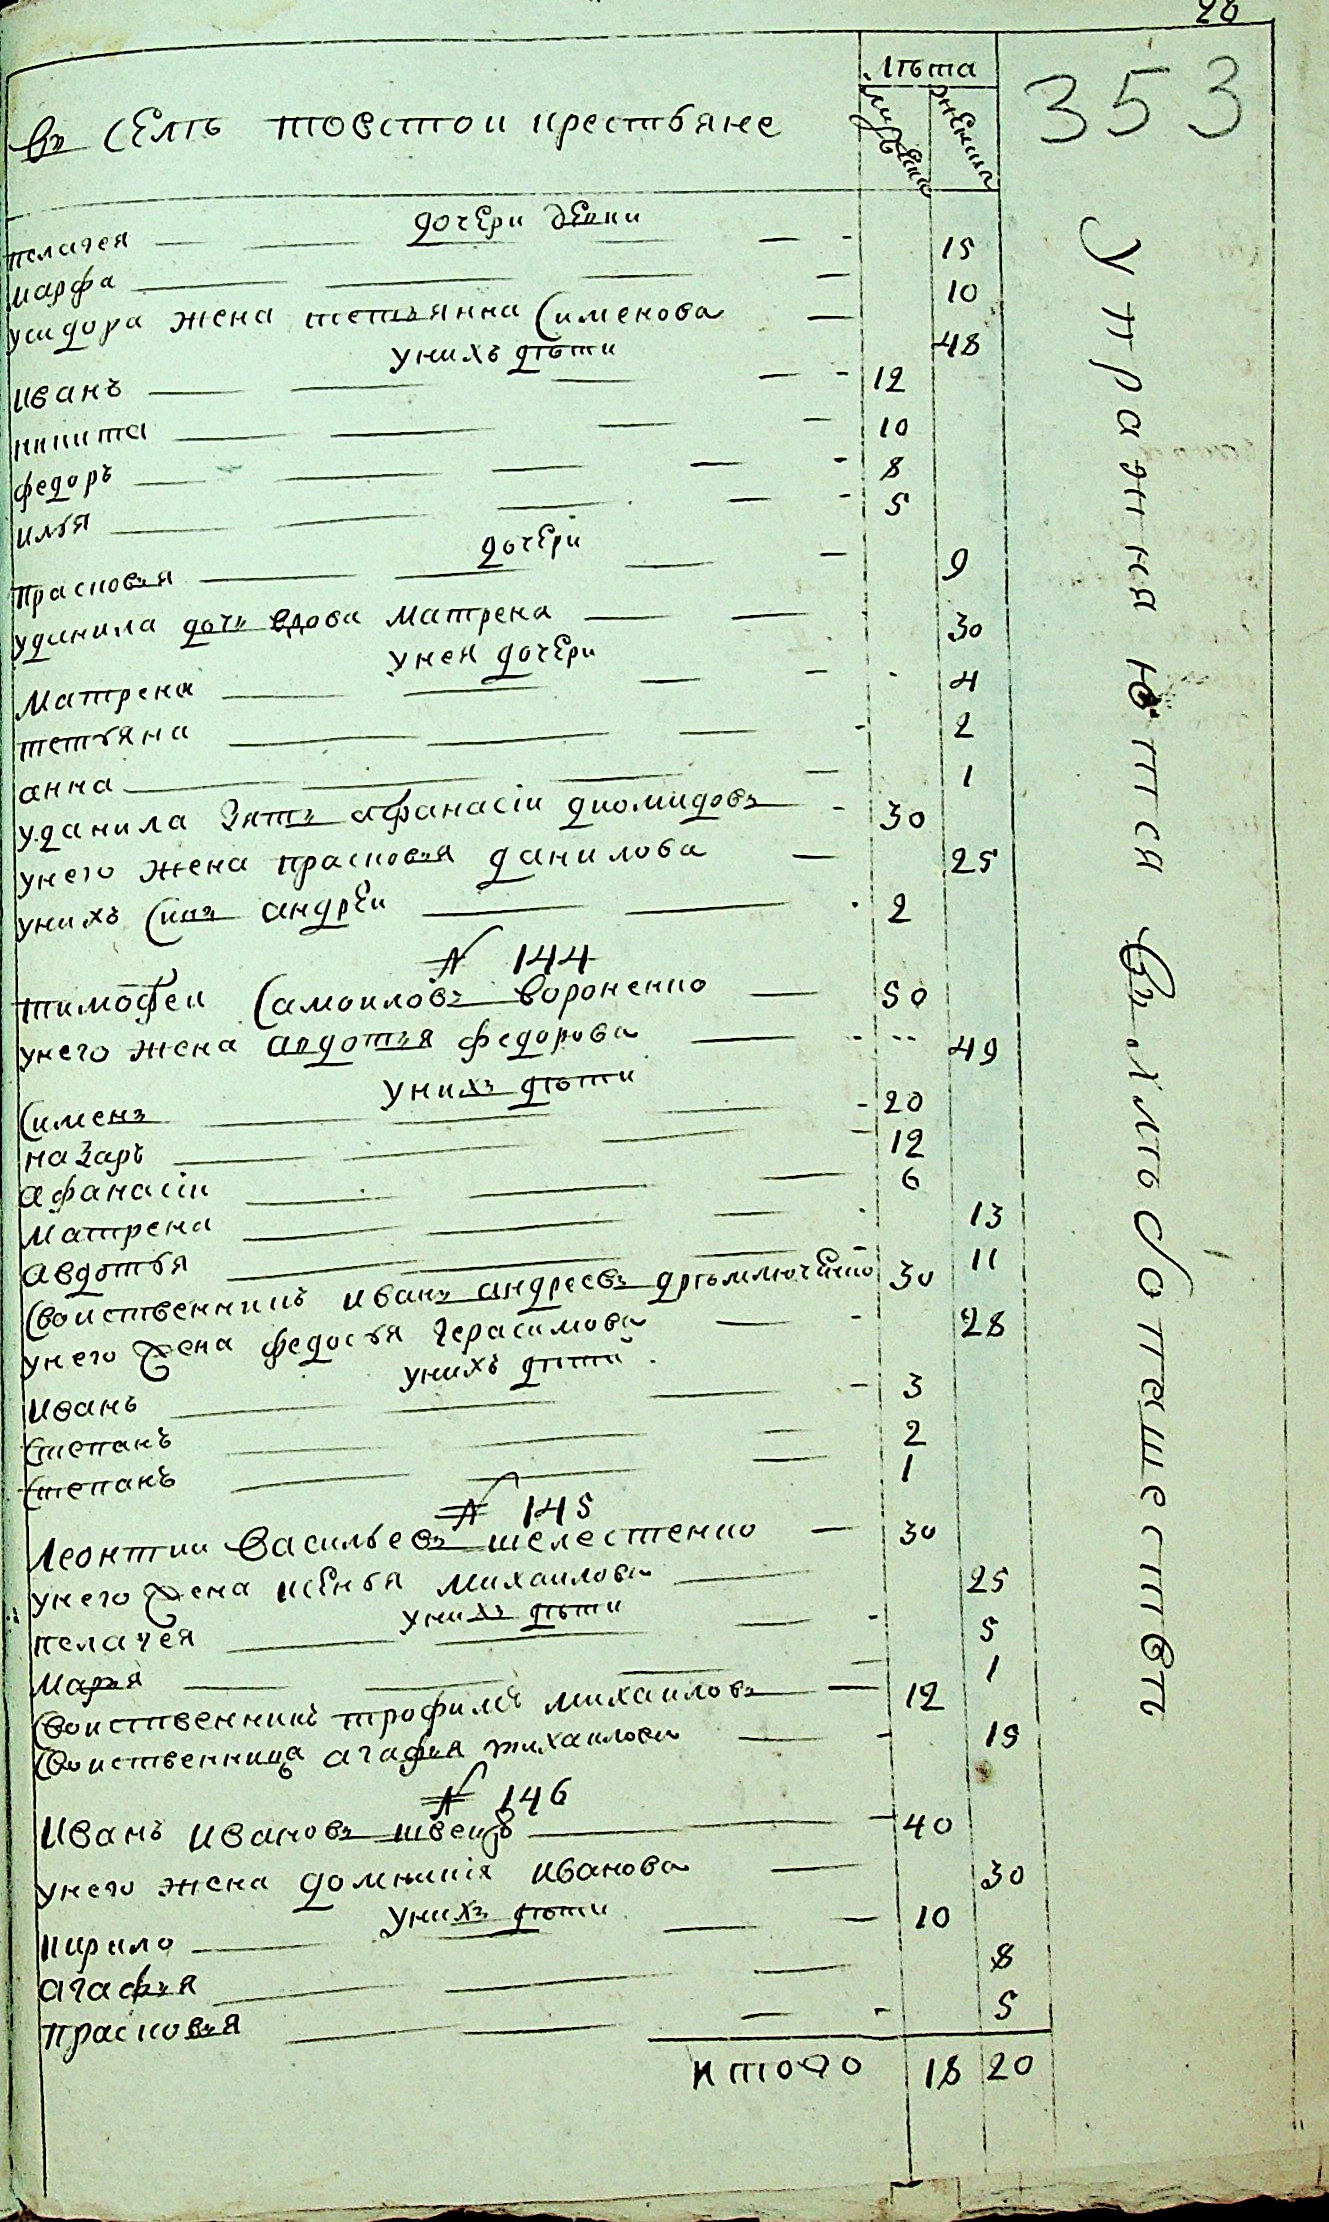 28
353
Лѣта
мужеска
женска
въ селѣ товстои крестьяне
дочери девки
пелагея 15
марфа 10
у сидора жена тетъянна Сименова 48
у нихъ дѣти
иванъ 12
никита 10
федоръ 8
илья 5
дочери
прасковья 9
у данила дочь вдова матрена 30
у нея дочери
матрена 4
тетьяна 2
анна 1
у данила зять афанасіи диомидовъ 30
у него жена прасковья данилова 25
у нихъ Синъ андреи 2
№ 144
тимофеи Самоиловъ вороненко 50
у него жена авдотья федорова 49
у нихъ дѣти
Сименъ 20
назаръ 12
афанасіи 6
матрена 13
авдотья 11
Своиственникъ иванъ андреевъ 30
у него жена федосья герасимова 28
у нихъ дѣти
иванъ 3
Степанъ 2
Степанъ 1
№ 145
Леонтии васильевъ шелестенко 30
у него жена ксенья михаилова 25
у нихъ дѣти
пелагея 5
марья 1
Своиственникъ трофимъ михаиловъ 12
Своиственница агафья михаилова 15
№ 146
иванъ ивановъ швецъ 40
у него жена домникія иванова 30
у нихъ дѣти
кирило 10
агафья 8
прасковья 5
итого 18 20
упражняются въ хлѣбопашествѣ